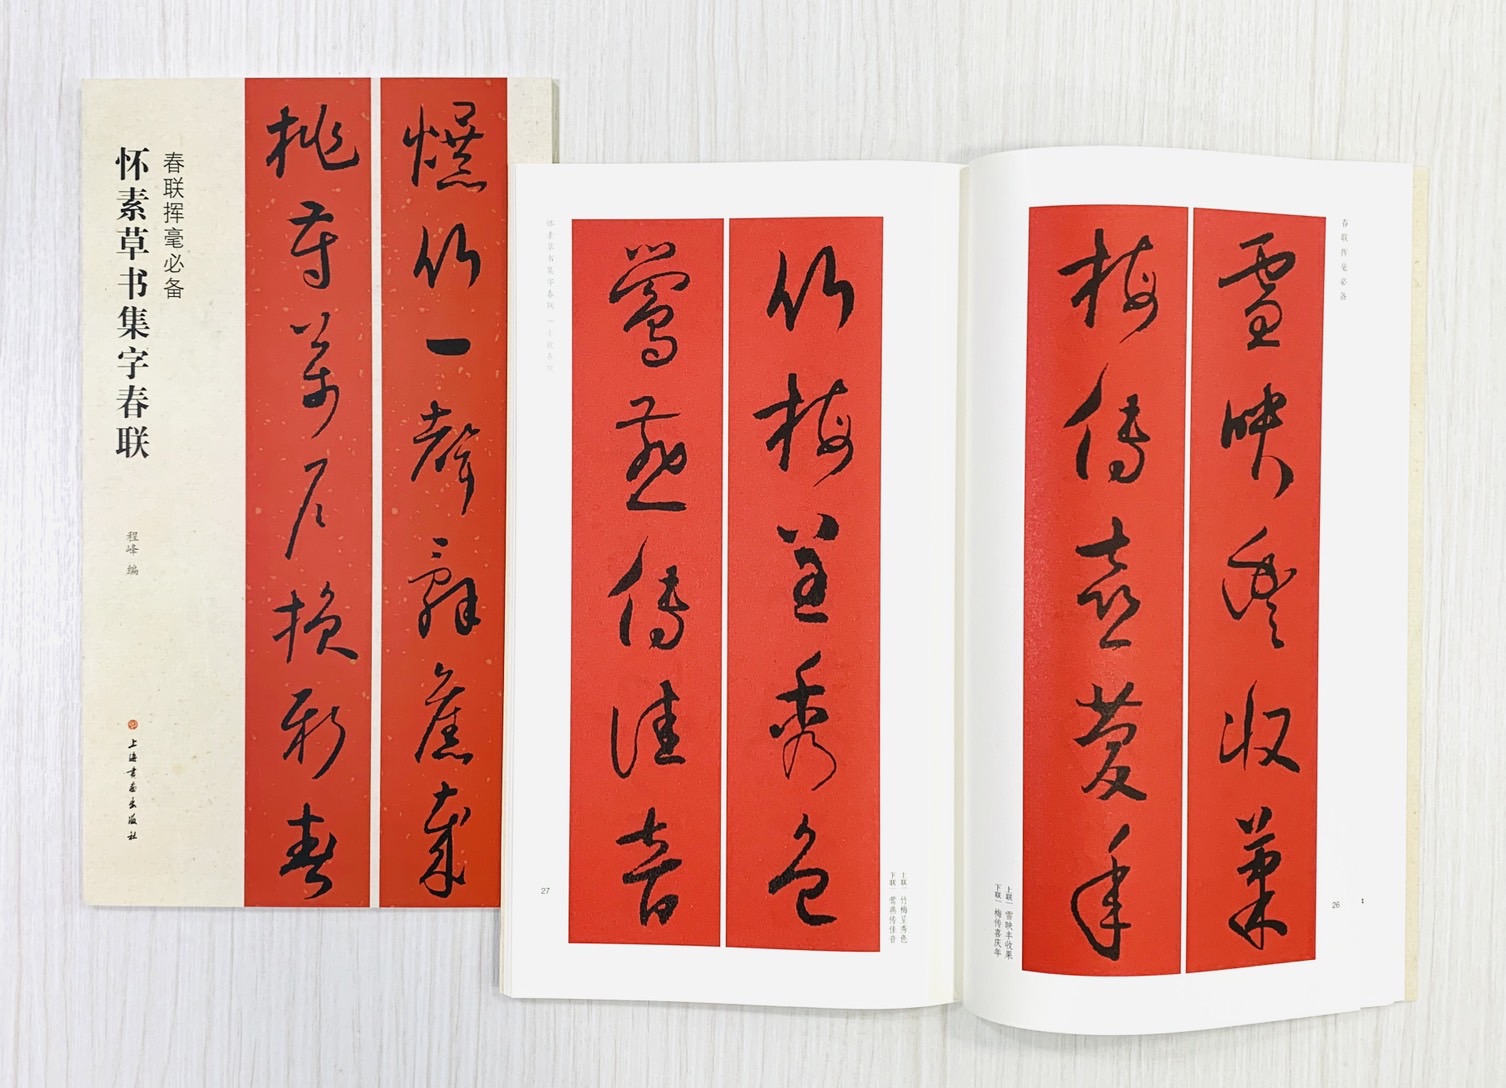 爆竹一聲辭舊歲
桃符萬戶換新春
春联挥毫必备
怀素草书集字春联
程峰 编
上海书画出版社
春联挥毫必备
26
雪映豐收果
梅傳喜慶年
上联 雪映丰收果
下联 梅传喜庆年
竹梅呈秀色
鶯燕傳佳音
上联 竹梅呈秀色
下联 莺燕传佳音
怀素草书集字春联
27